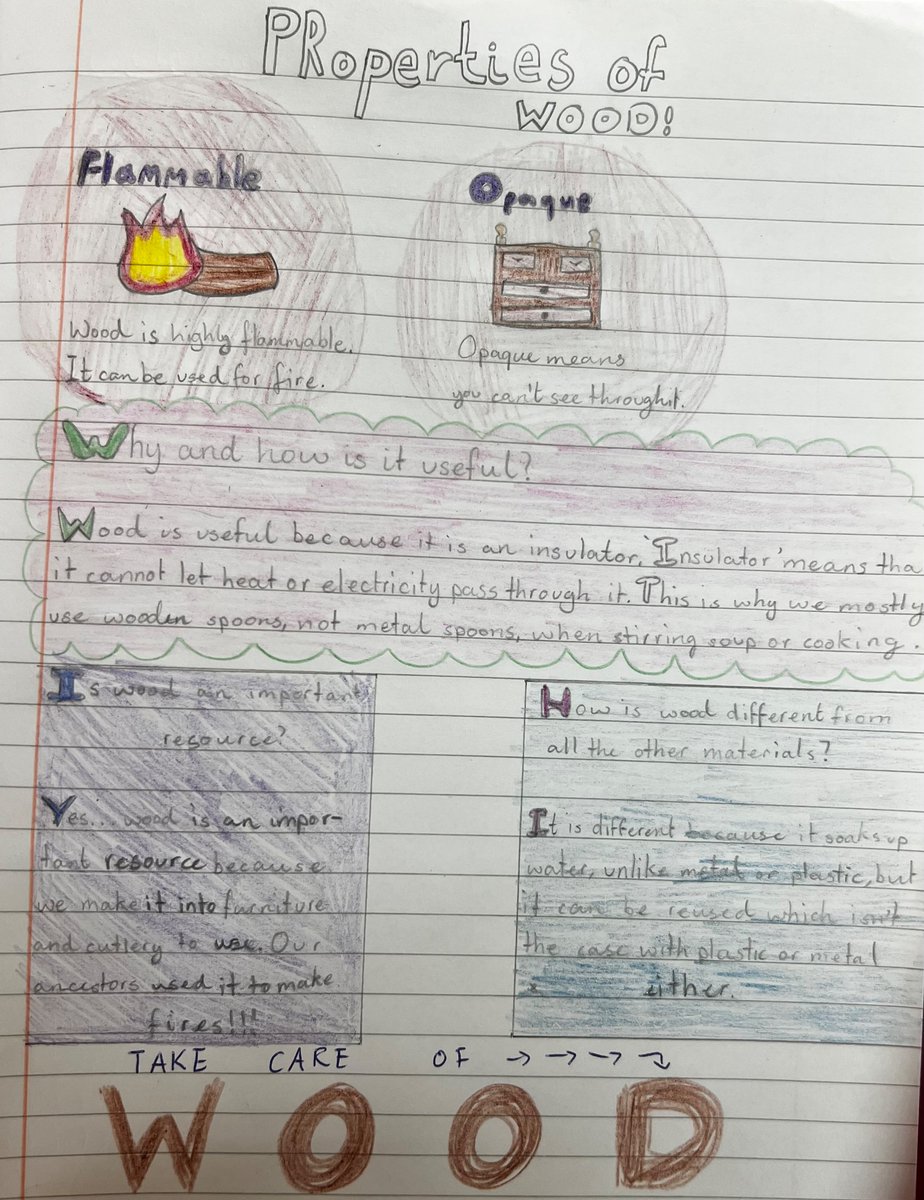 PRoperties of
WOOD!
Flammable
Wood is highly flammable.
It can be used for fire.
Opaque
Opaque means
you can't see through it.
Why and how is it useful?
Wood is useful because it is an insulator. 'Insulator' means tha
it cannot let heat or electricity pass through it. This is why we mostly
use wooden spoons, not metal spoons, when stirring soup or cooking.
Is wood an important
resource?
Yes... wood is an impor-
tant resource because
we make it into furniture
and cutlery to use. Our
ancestors used it to make
fires!!!
How is wood different from
all the other materials?
It is different because it soaks up
water, unlike metal or plastic, but
it can be reused which isn't
the case with plastic or metal
either.
TAKE CARE OF → → → ⤵
WOOD